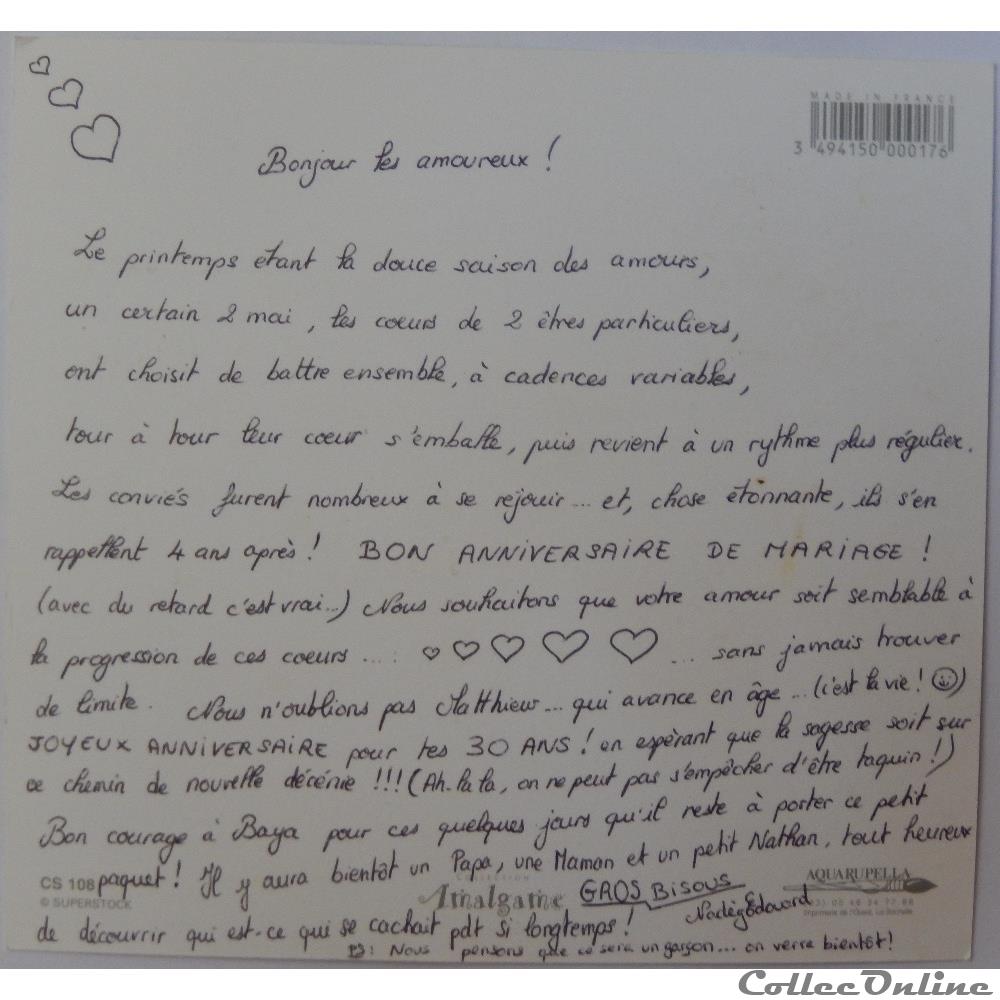 MADE IN FRANCE
3 494150 000176
Bonjour les amoureux !
Le printemps étant la douce saison des amours,
un certain 2 mai, les coeurs de 2 êtres particuliers,
ont choisit de battre ensemble, à cadences variables,
tour à tour leur coeur s'emballe, puis revient à un rythme plus régulier.
Les conviés furent nombreux à se rejouir... et, chose étonnante, ils s'en
rappellent 4 ans après ! BON ANNIVERSAIRE DE MARIAGE !
(avec du retard c'est vrai...) Nous souhaitons que votre amour soit semblable à
la progression de ces coeurs .... : ♡ ♡ ♡ ♡ ♡ ... sans jamais trouver
de limite. Nous n'oublions pas Matthieu... qui avance en âge ... (c'est la vie ! ☺)
JOYEUX ANNIVERSAIRE pour tes 30 ANS ! en espérant que la sagesse soit sur
ce chemin de nouvelle décénie !!! (Ah. la la, on ne peut pas s'empêcher d'être taquin !)
Bon courage à Baya pour ces quelques jours qu'il reste à porter ce petit
paquet ! Il y aura bientôt un Papa, une Maman et un petit Nathan, tout heureux
CS 108
© SUPERSTOCK
COLLECTION
Amalgame
GROS BISOUS
Nadèg Edouard
AQUARUPELLA
Imprimerie de l'Ouest, La Rochelle
de découvrir qui est-ce qui se cachait pdt si longtemps !
PS : Nous pensons que ce sera un garçon... on verra bientôt !
CollecOnline